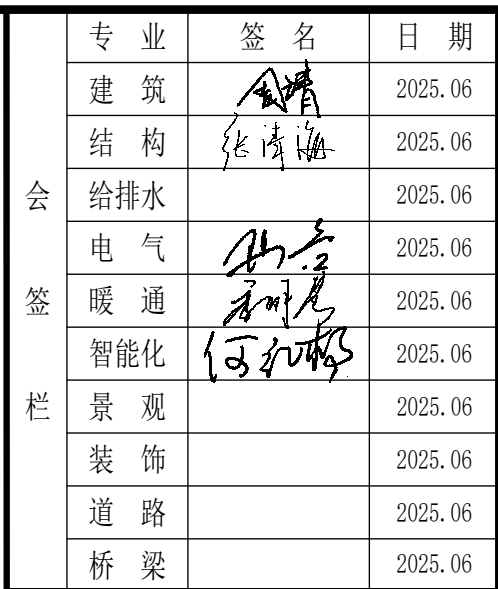 会签栏
专业 签名 日期
建筑 2025.06
结构 张涛海 2025.06
给排水 2025.06
电气 2025.06
暖通 2025.06
智能化 2025.06
景观 2025.06
装饰 2025.06
道路 2025.06
桥梁 2025.06